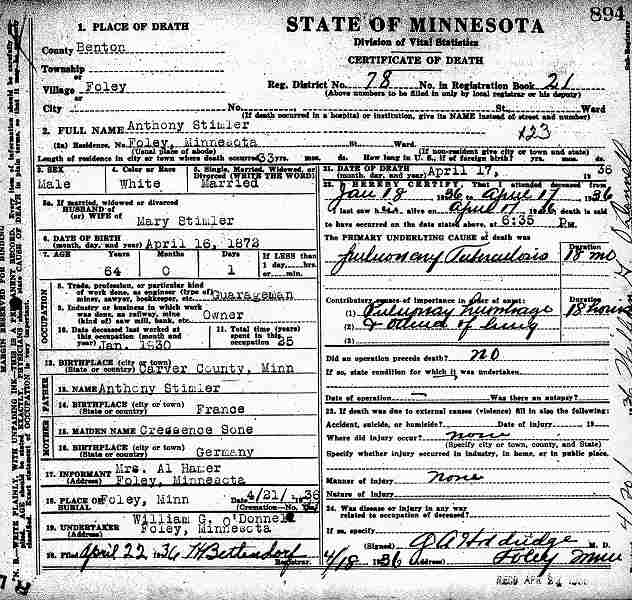 894
1. PLACE OF DEATH
STATE OF MINNESOTA
Division of Vital Statistics
CERTIFICATE OF DEATH
County Benton
Township
or
Village Foley
Reg. District No. 78 No. in Registration Book 21
(Above numbers to be filled in only by local registrar or his deputy)
City No. St. Ward
(If death occurred in a hospital or institution, give its NAME instead of street and number)
2. FULL NAME Anthony Stimler 123
(2a) Residence, No. Foley, Minnesota St. Ward
(Usual place of abode) (If non-resident give city or town and state)
Length of residence in city or town where death occurred 33 yrs. mos. ds. How long in U. S., if of foreign birth? yrs. mos. ds.
3. SEX 4. Color or Race 5. Single, Married, Widowed, or Divorced (WRITE THE WORD)
Male White Married
5a. If married, widowed or divorced
HUSBAND of
(or) WIFE of Mary Stimler
6. DATE OF BIRTH
(month, day, and year) April 16, 1872
7. AGE Years Months Days If LESS than
1 day, hrs.
or min.
64 0 1
OCCUPATION
8. Trade, profession, or particular kind
of work done, as engineer (type of)
miner, sawyer, bookkeeper, etc. Guarageman
9. Industry or business in which work
was done, as railway, mine
(kind of) saw mill, bank, etc. Owner
10. Date deceased last worked at
this occupation (month and
year) Jan. 1930
11. Total time (years)
spent in this
occupation 25
12. BIRTHPLACE (city or town)
(State or country) Carver County, Minn
FATHER
13. NAME Anthony Stimler
14. BIRTHPLACE (city or town)
(State or country) France
MOTHER
15. MAIDEN NAME Cressence Sone
16. BIRTHPLACE (city or town)
(State or country) Germany
17. INFORMANT Mrs. Al Hamer
(Address) Foley, Minnesota
18. PLACE OF
BURIAL Foley, Minn Date 4/21/ 1936
19. UNDERTAKER William G. O'Donnell
(Address) Foley, Minnesota
20. Filed April 22 1936 Bettendorf
Registrar.
21. DATE OF DEATH
(month, day, and year) April 17, 1936
22. I HEREBY CERTIFY, That I attended deceased from
Jan 18 1936 to April 17 1936
I last saw him alive on April 17 1936 death is said
to have occurred on the date stated above, at 6:35 P m.
THE PRIMARY UNDERLYING CAUSE of death was Duration
Pulmonary Tuberculosis 18 mo
Contributory causes of importance in order of onset: Duration
(1) Pulmonary hemorrhage 18 hours
(2) & edema of lung
(3)
Did an operation precede death? no
If so, state condition for which it was undertaken.
Date of operation — Was there an autopsy?
23. If death was due to external causes (violence) fill in also the following:
Accident, suicide, or homicide? Date of injury 19
Where did injury occur? none
(Specify city or town, county, and State)
Specify whether injury occurred in industry, in home, or in public place.
Manner of injury none
Nature of injury
24. Was disease or injury in any way
related to occupation of deceased?
If so, specify
(Signed) M. D.
4/18 1936 (Address) Foley Minn
REC'D APR 24
MARGIN RESERVED FOR BINDING